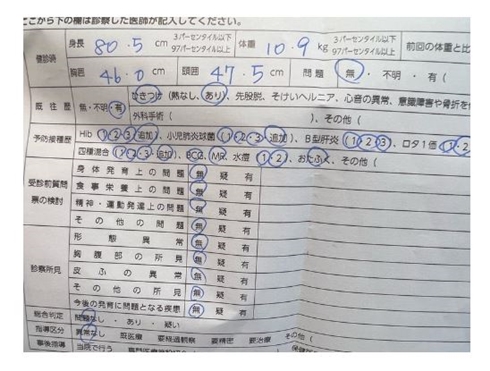 ここから下の欄は診察した医師が記入してください。
健診時 身長 80.5 cm 3パーセンタイル以下 97パーセンタイル以上 体重 10.9 kg 3パーセンタイル以下 97パーセンタイル以上 前回の体重と比
胸囲 46.0 cm 頭囲 47.5 cm 問題 無・不明・有(
既往歴 無・不明・有 ひきつけ (熱なし、あり)、先股脱、そけいヘルニア、心音の異常、意識障害や骨折を
外科手術( )、その他(
予防接種歴 Hib (1・2・3・追加)、小児肺炎球菌 (1・2・3・追加)、B型肝炎 (1・2・3)、ロタ1価 (1・2
四種混合 (1・2・3・追加)、BCG、MR、水痘 (1・2)、おたふく、その他(
受診前質問票の検討 身体発育上の問題 無 疑 有
食事栄養上の問題 無 疑 有
精神・運動発達上の問題 無 疑 有
その他の問題 無 疑 有
診察所見 形態異常 無 疑 有
胸腹部の所見 無 疑 有
皮ふの異常 無 疑 有
その他の所見 無 疑 有
今後の発育に問題となる疾患 無 疑 有
総合判定 問題なし・あり・疑い
指導区分 異常なし 既医療 要経過観察 要精密 要治療 その他(
事後指導 当院で行う